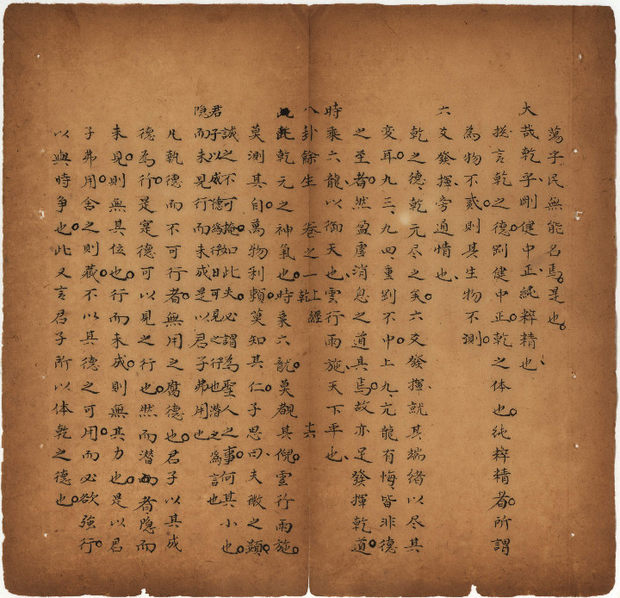 蕩乎民無能名焉是也
大哉乾乎剛健中正純粹精也
搃言乾之德剛健中正乾之体也純粹精者所謂
為物不貳則其生物不測
六爻發揮旁通情也
乾之德乾元尽之矣六爻發揮就其端緒以尽其
変耳九三九四重剛不中上九亢龍有悔皆非德
之至者然盈虚消息之道具焉故亦足發揮乾道
時乗六龍以御天也雲行雨施天下平也
八卦餘生 卷之一 乾 上經 十六
乾元之神氣也時乗六龍莫覩其倪雲行雨施
莫測其自萬物利賴莫知其仁子思曰夫微之顯
誠之不可掩如此夫必謂為聖人之事何其小也
君子以成德為行日可見之行也潜之為言也
隐而未見行而未成是以君子弗用也
凡執德而不可行者無用之腐德也君子以其成
德為行是寔德可以見之行也然而潜者隐而
未見則無其位也行而未成則無其力也是以君
子弗用舍之則藏不以其德之可用而必欲強行
以與時争也此又言君子所以体乾之德也